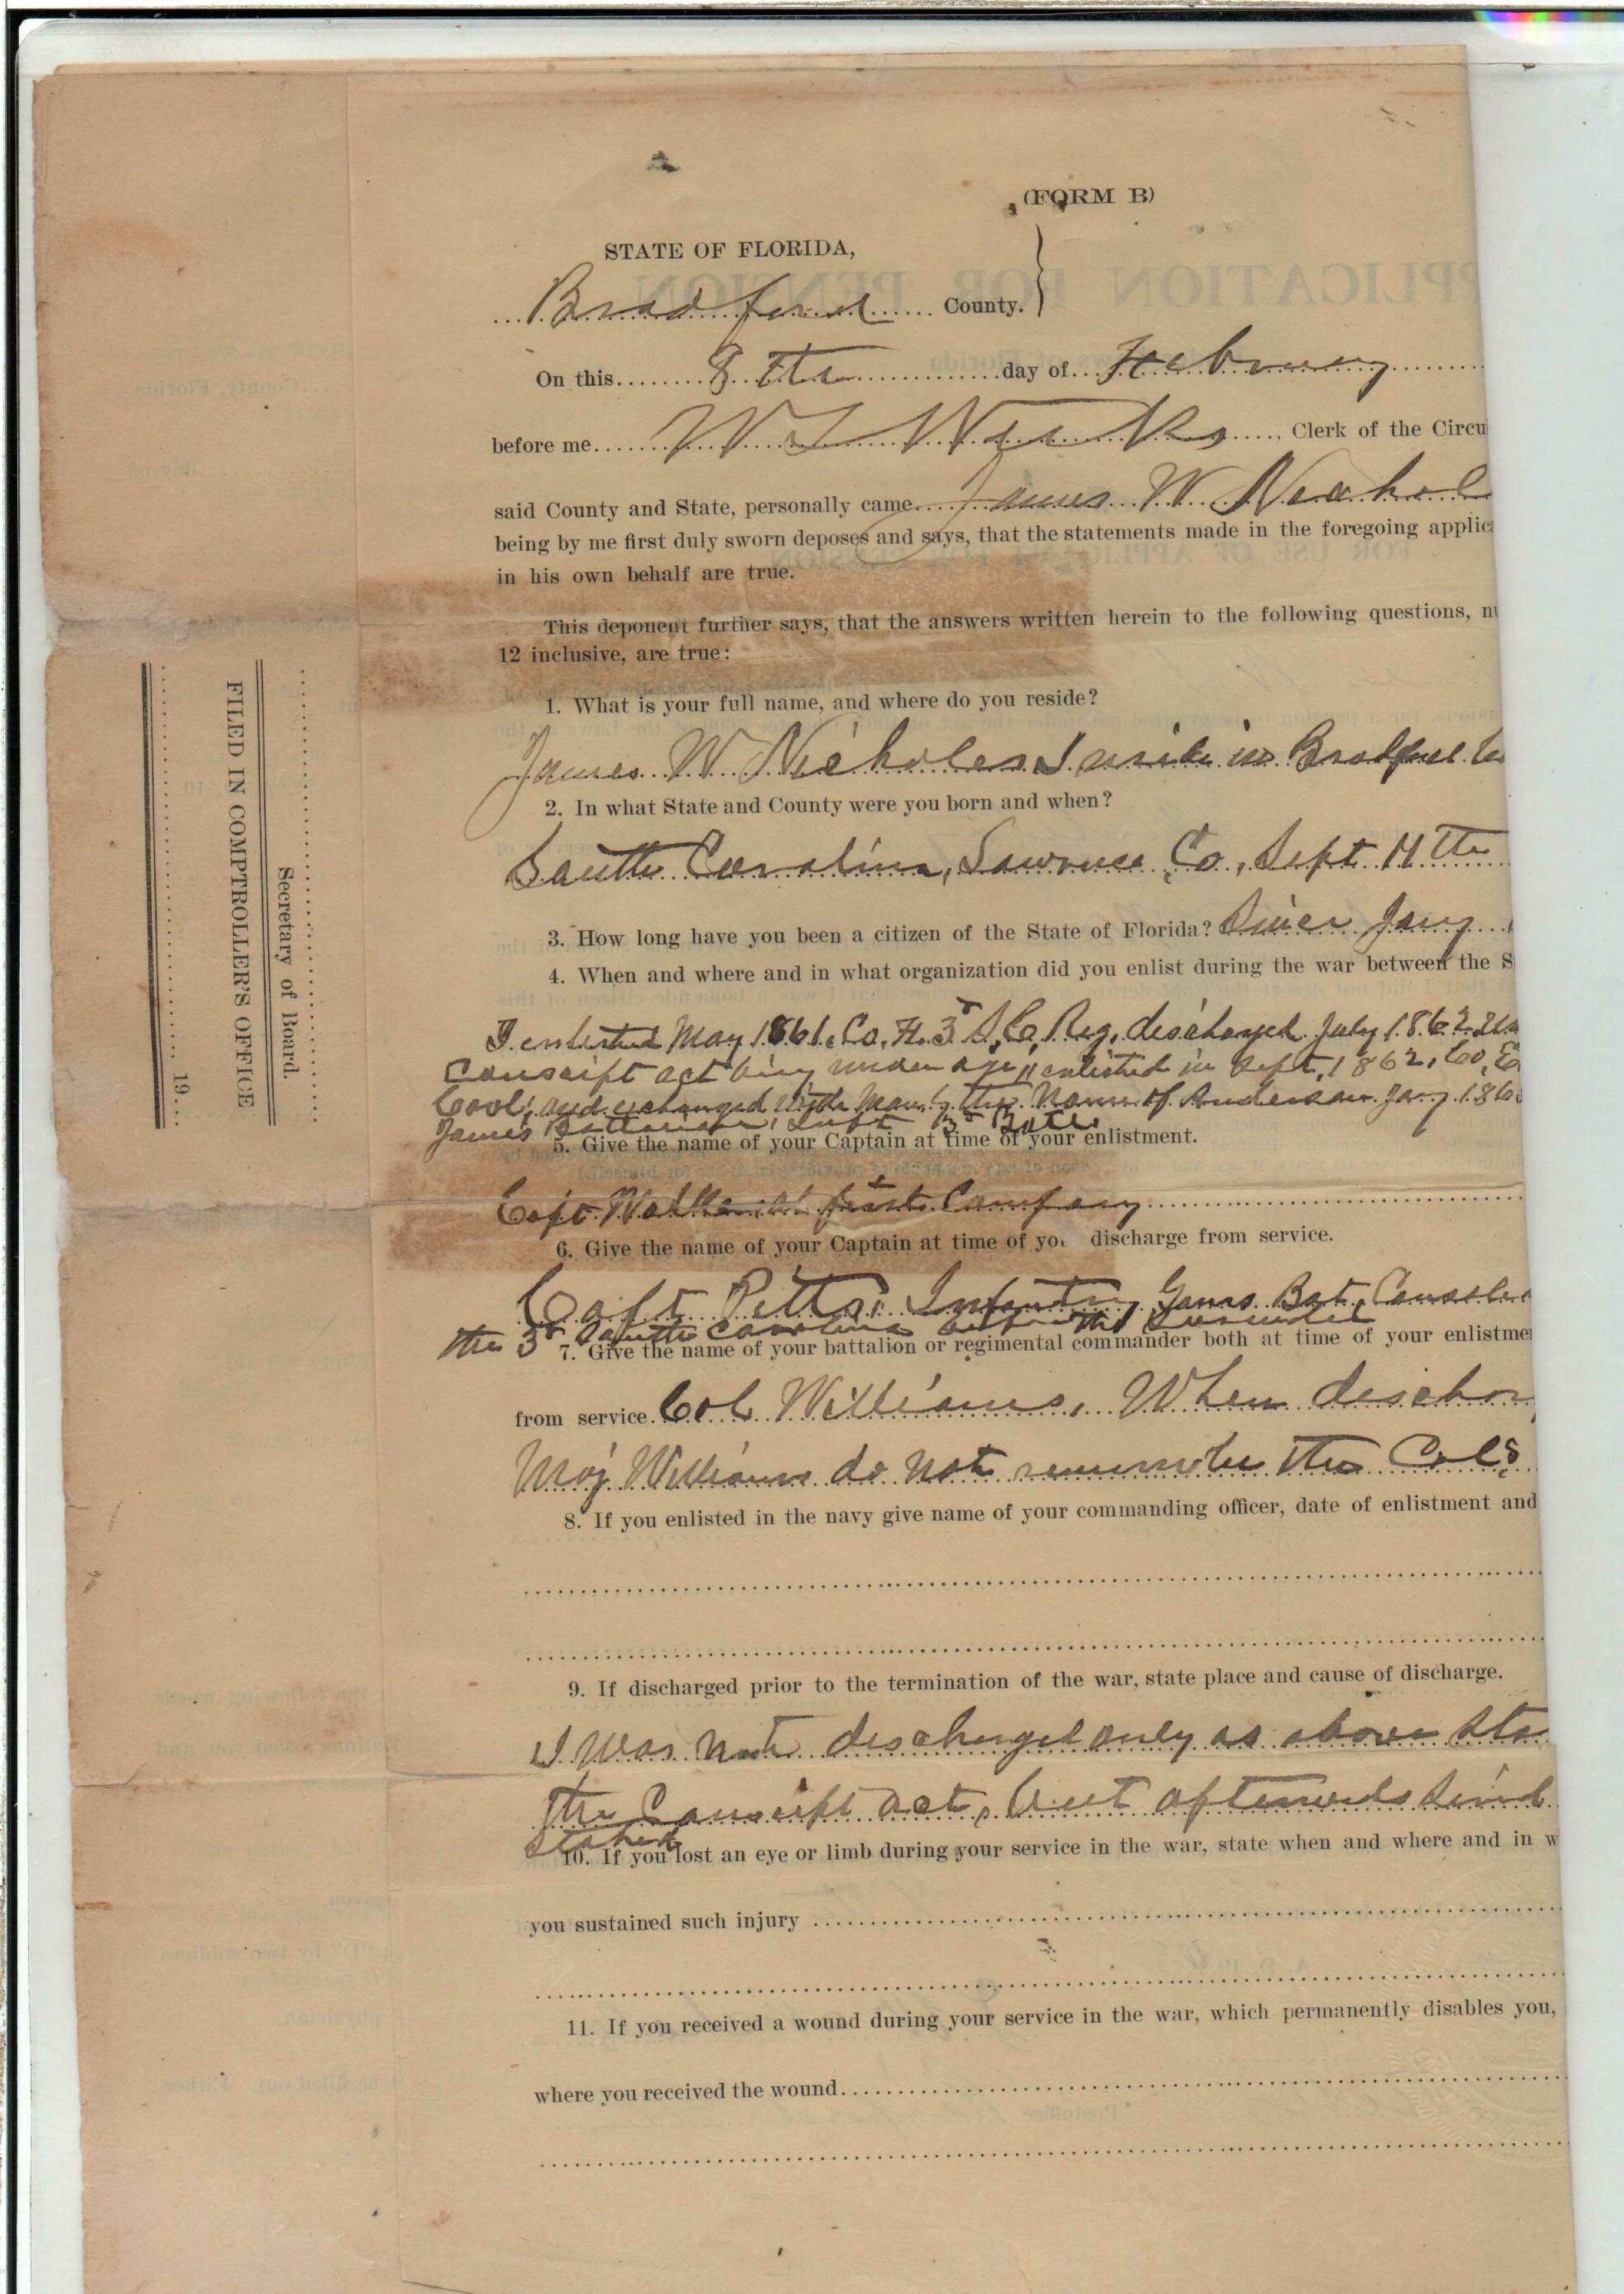 (FORM B)
STATE OF FLORIDA,
Bradford County.
On this 8th day of February
before me W Weeks, Clerk of the Circu
said County and State, personally came James W. Nichol
being by me first duly sworn deposes and says, that the statements made in the foregoing applica
in his own behalf are true.
This deponent further says, that the answers written herein to the following questions, nu
12 inclusive, are true:
1. What is your full name, and where do you reside?
James W. Nicholes I reside in Bradford Co
2. In what State and County were you born and when?
South Carolina, Lawrence Co, Sept 11th
3. How long have you been a citizen of the State of Florida? Since Jany
4. When and where and in what organization did you enlist during the war between the S
I enlisted May 1861, Co, H. 3r S, Co, Reg, discharged July 1862
Conscript act being under age, enlisted in Sept, 1862, Co, E
and exchanged with Man by the Name of Anderson Jany 186
James Battalion, 3r Batl
5. Give the name of your Captain at time of your enlistment.
Capt Walker, at first Company
6. Give the name of your Captain at time of you discharge from service.
Capt Pitts, Infantry James Bat,
the 3r South Carolina
7. Give the name of your battalion or regimental commander both at time of your enlistme
from service Col Williams, When dischar
Maj Williams do not remember the Cols
8. If you enlisted in the navy give name of your commanding officer, date of enlistment and
9. If discharged prior to the termination of the war, state place and cause of discharge.
I was not discharged only as above sta
the Conscript act, but afterwards
stated
10. If you lost an eye or limb during your service in the war, state when and where and in w
you sustained such injury
11. If you received a wound during your service in the war, which permanently disables you,
where you received the wound
Secretary of Board.
FILED IN COMPTROLLER'S OFFICE
19